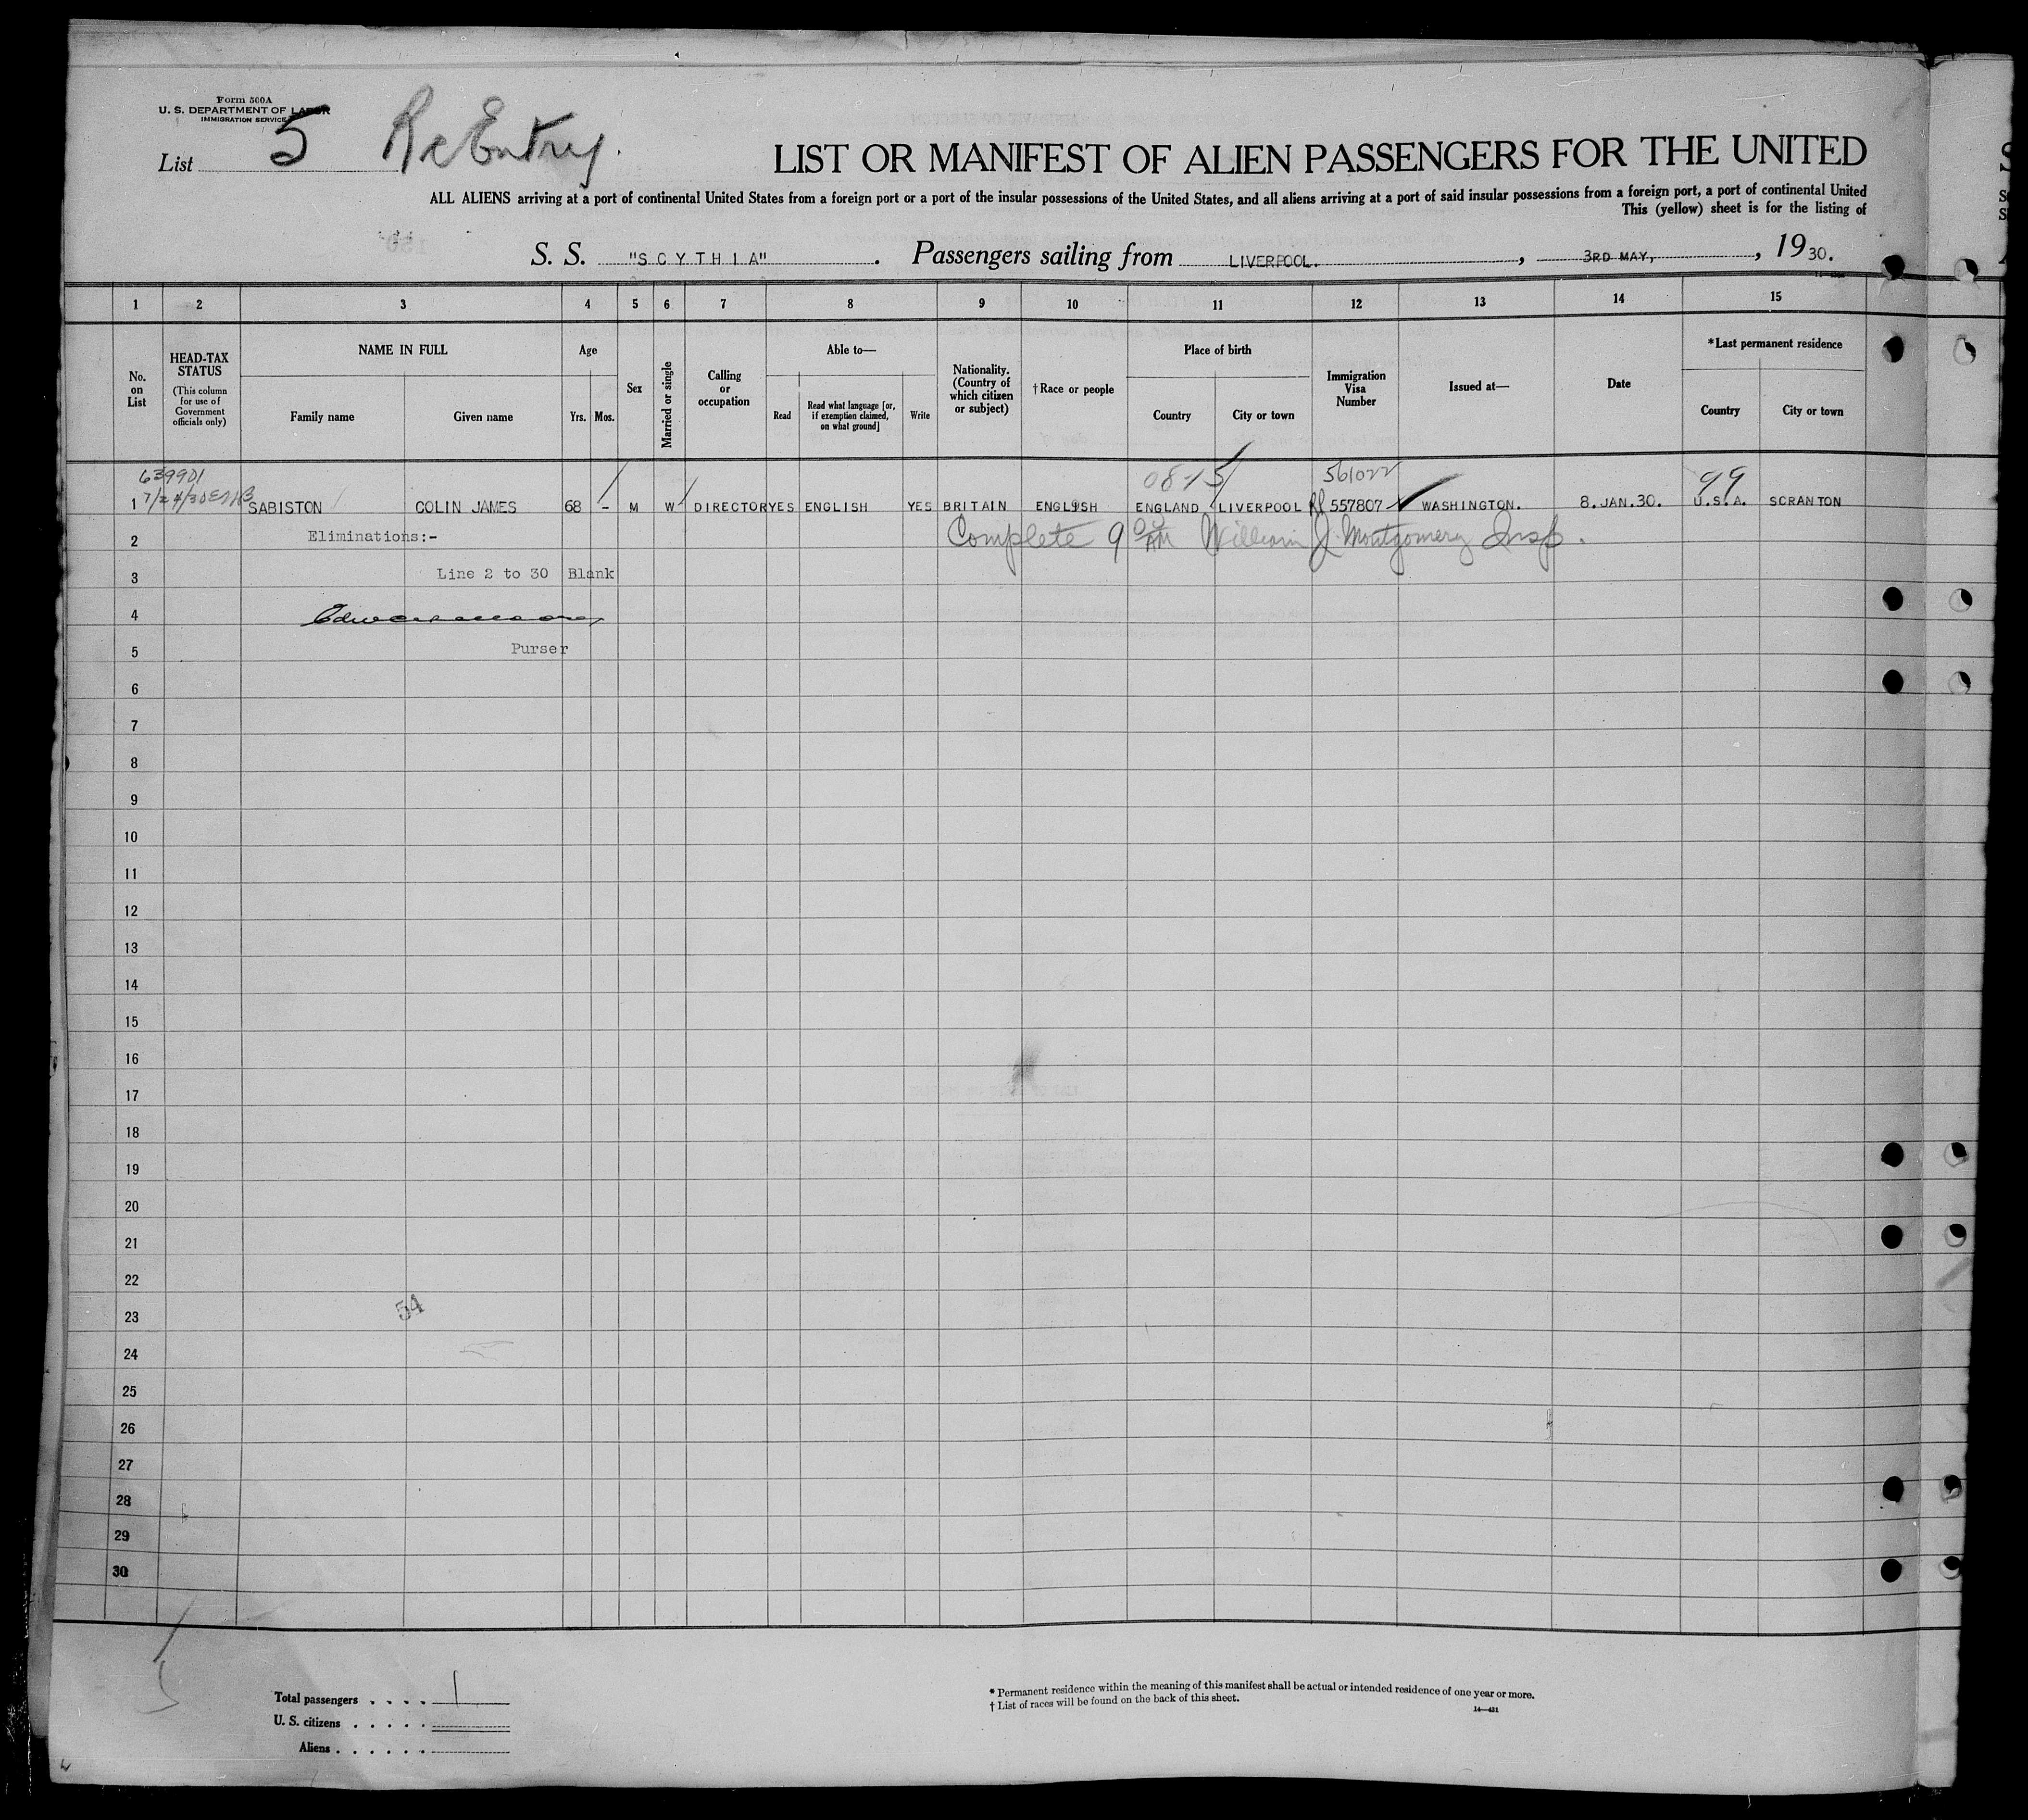 Form 500A
U. S. DEPARTMENT OF LABOR
IMMIGRATION SERVICE
List 5 ReEntry.
LIST OR MANIFEST OF ALIEN PASSENGERS FOR THE UNITED
ALL ALIENS arriving at a port of continental United States from a foreign port or a port of the insular possessions of the United States, and all aliens arriving at a port of said insular possessions from a foreign port, a port of continental United
This (yellow) sheet is for the listing of
S. S. "SCYTHIA". Passengers sailing from LIVERPOOL., 3RD MAY, , 1930.
1 2 3 4 5 6 7 8 9 10 11 12 13 14 15
No. on List
HEAD-TAX STATUS
(This column for use of Government officials only)
NAME IN FULL
Family name Given name
Age
Yrs. Mos.
Sex
Married or single
Calling or occupation
Able to—
Read
Read what language [or, if exemption claimed, on what ground]
Write
Nationality. (Country of which citizen or subject)
†Race or people
Place of birth
Country City or town
Immigration Visa Number
Issued at—
Date
*Last permanent residence
Country City or town
639901 0815 561022 99
1 SABISTON COLIN JAMES 68 - M W DIRECTOR YES ENGLISH YES BRITAIN ENGLISH ENGLAND LIVERPOOL 557807 WASHINGTON. 8.JAN.30. U.S.A. SCRANTON
2 Eliminations:- Complete 9 00 AM William J. Montgomery Insp.
3 Line 2 to 30 Blank
4
5 Purser
6
7
8
9
10
11
12
13
14
15
16
17
18
19
20
21
22
23 54
24
25
26
27
28
29
30
Total passengers . . . . 1
U. S. citizens . . . . .
Aliens . . . . . .
* Permanent residence within the meaning of this manifest shall be actual or intended residence of one year or more.
† List of races will be found on the back of this sheet.
14—421